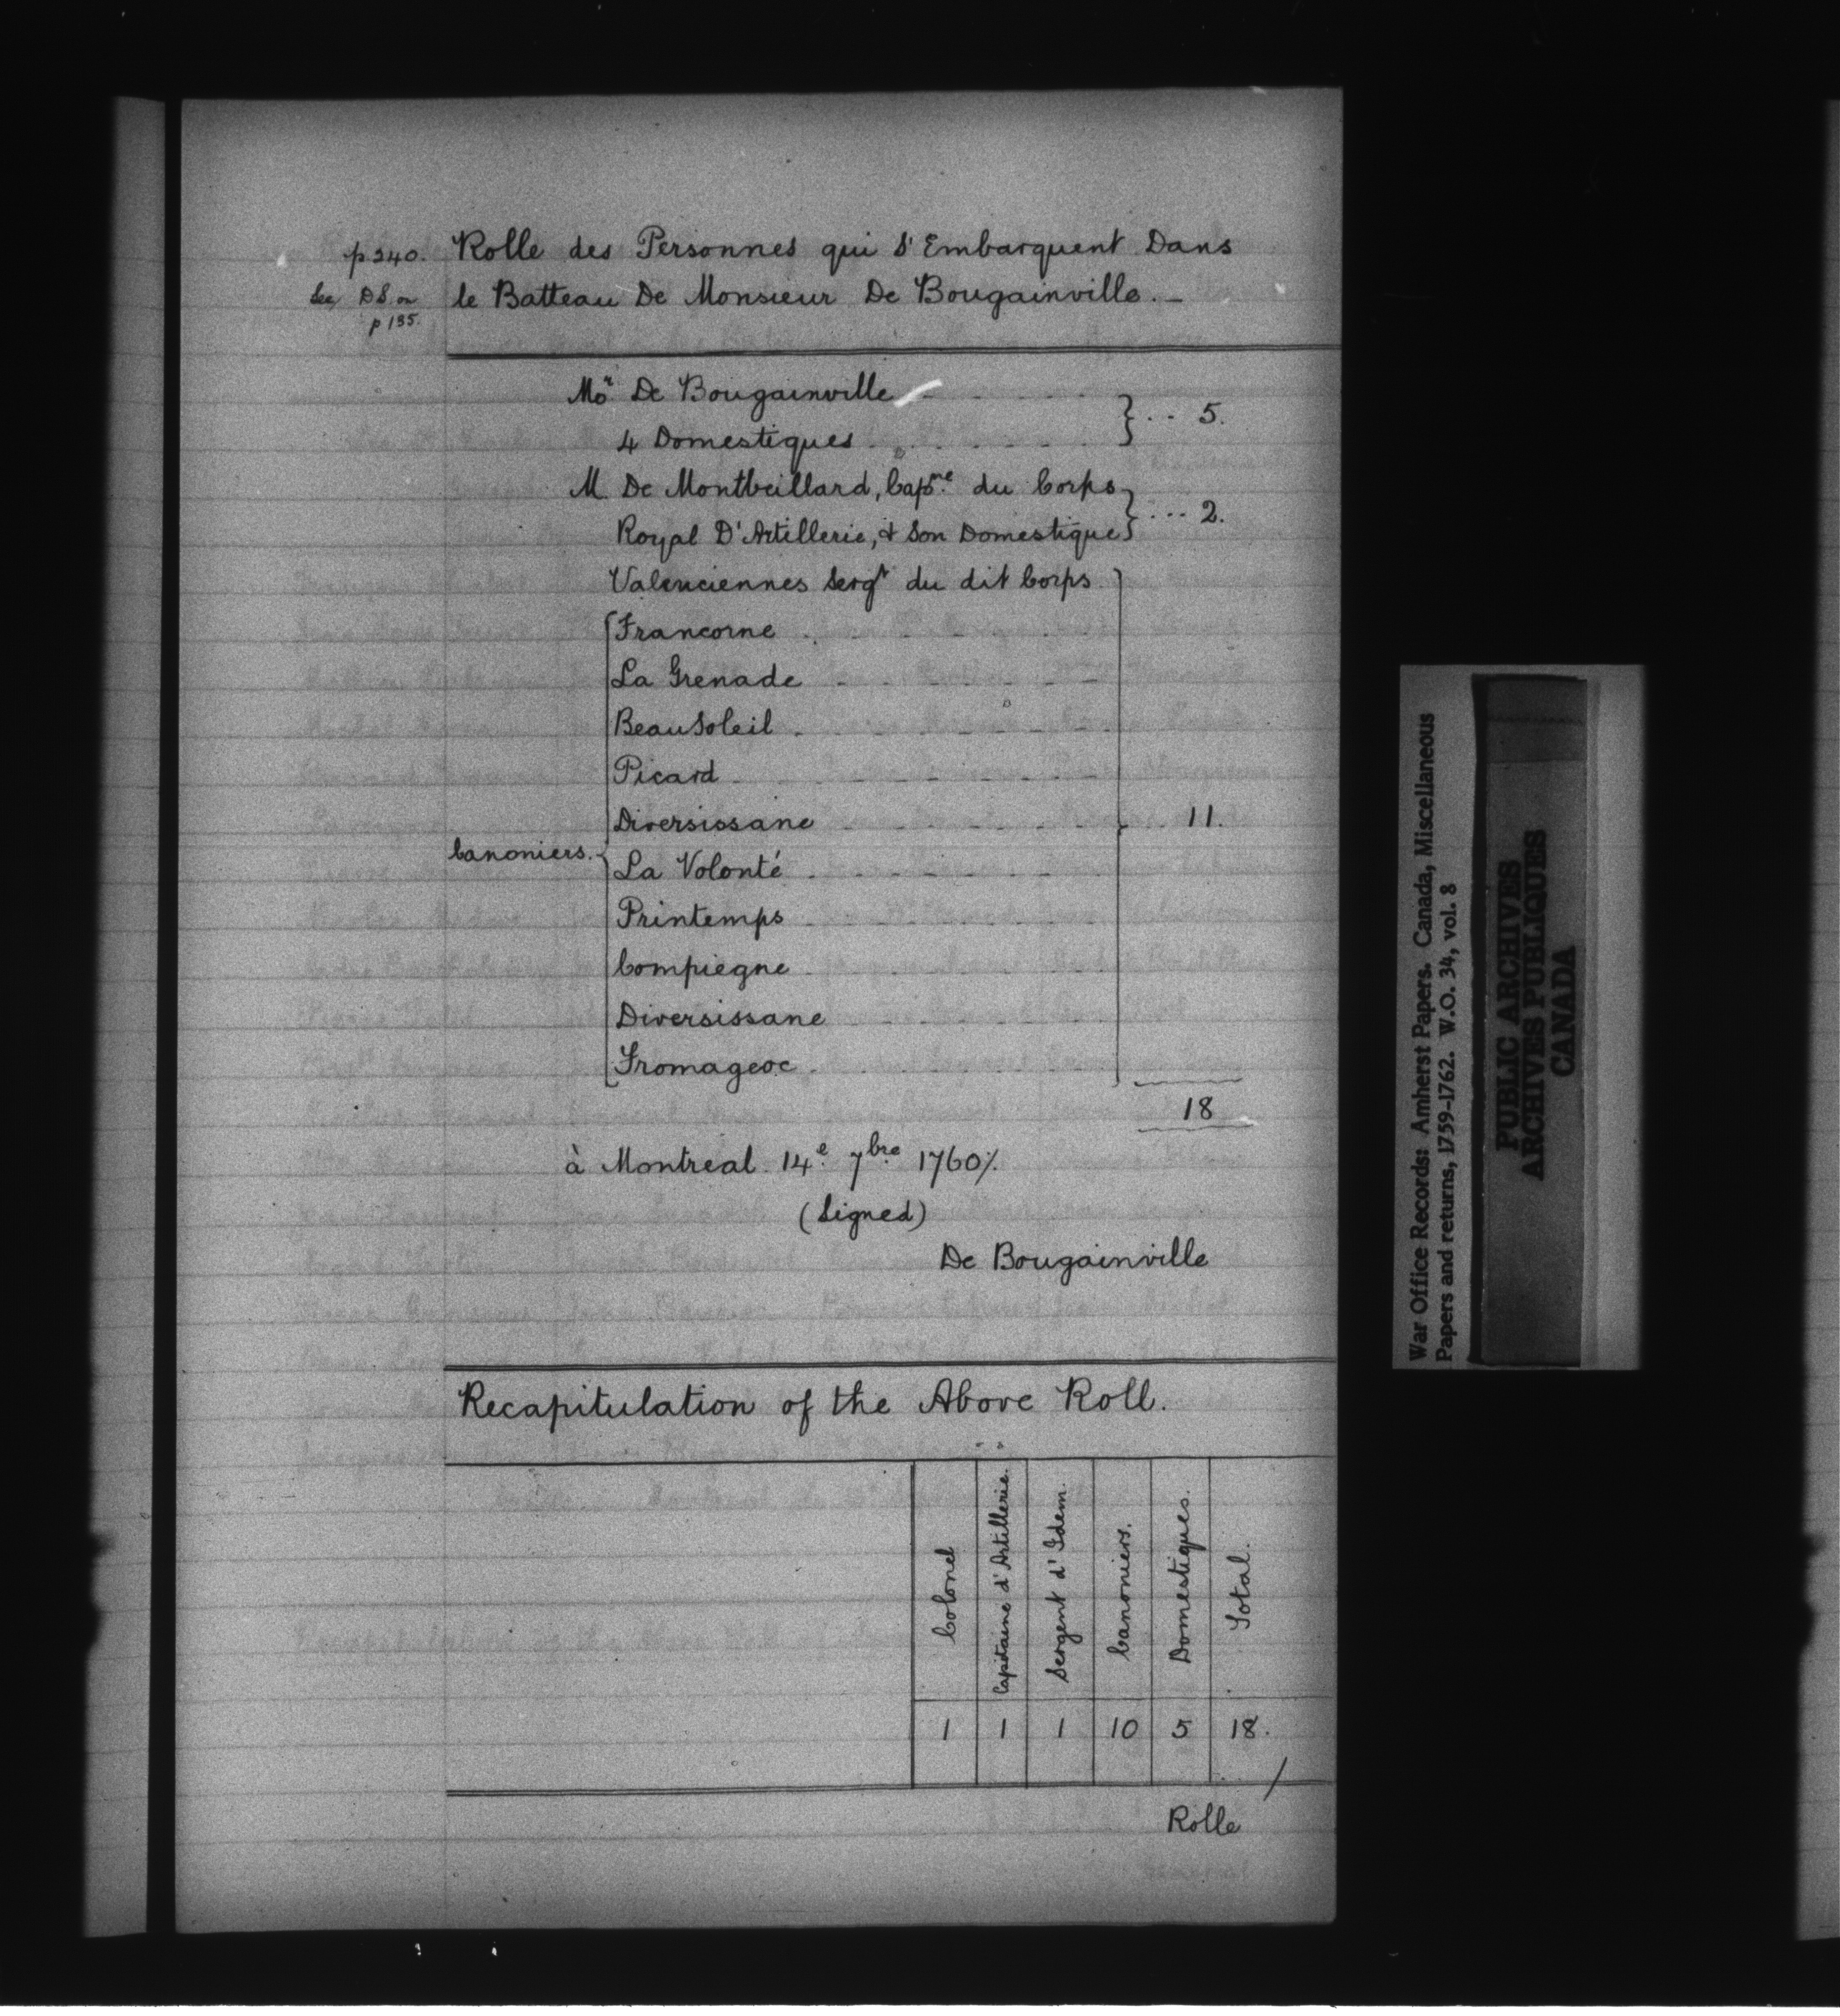 p 240. Rolle des Personnes qui S'Embarquent Dans
See D.S. on le Batteau De Monsieur De Bougainville._
p 135.
Mor De Bougainville
4 Domestiques } ... 5.
M De Montbeillard, Capne du Corps
Royal D'Artillerie, & Son Domestique } ... 2.
Valenciennes Sergt du dit Corps
Francorne
La Grenade
BeauSoleil
Picard
Diversissane 11.
Canoniers. La Volonté
Printemps
Compiegne
Diversissane
Fromageoc
18
à Montreal 14e 7bre 1760%
(Signed)
De Bougainville
Recapitulation of the Above Roll.
Colonel
Capitaine d'Artillerie.
Sergent d'Idem.
Canoniers.
Domestiques.
Total.
1 1 1 10 5 18.
/
Rolle
War Office Records: Amherst Papers. Canada, Miscellaneous
Papers and returns, 1759-1762. W.O. 34, vol. 8
PUBLIC ARCHIVES
ARCHIVES PUBLIQUES
CANADA